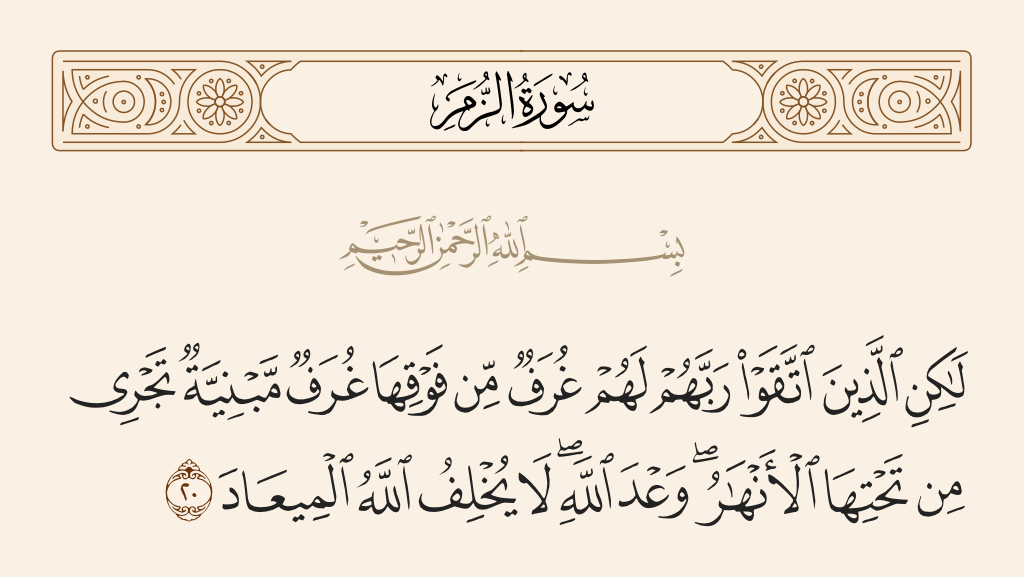 سُورَةُ الزُّمَرِ
بِسْمِ ٱللَّهِ ٱلرَّحْمَٰنِ ٱلرَّحِيمِ
لَٰكِنِ ٱلَّذِينَ ٱتَّقَوْا۟ رَبَّهُمْ لَهُمْ غُرَفٌ مِّن فَوْقِهَا غُرَفٌ مَّبْنِيَّةٌ تَجْرِى
مِن تَحْتِهَا ٱلْأَنْهَٰرُ ۖ وَعْدَ ٱللَّهِ ۖ لَا يُخْلِفُ ٱللَّهُ ٱلْمِيعَادَ ٢٠